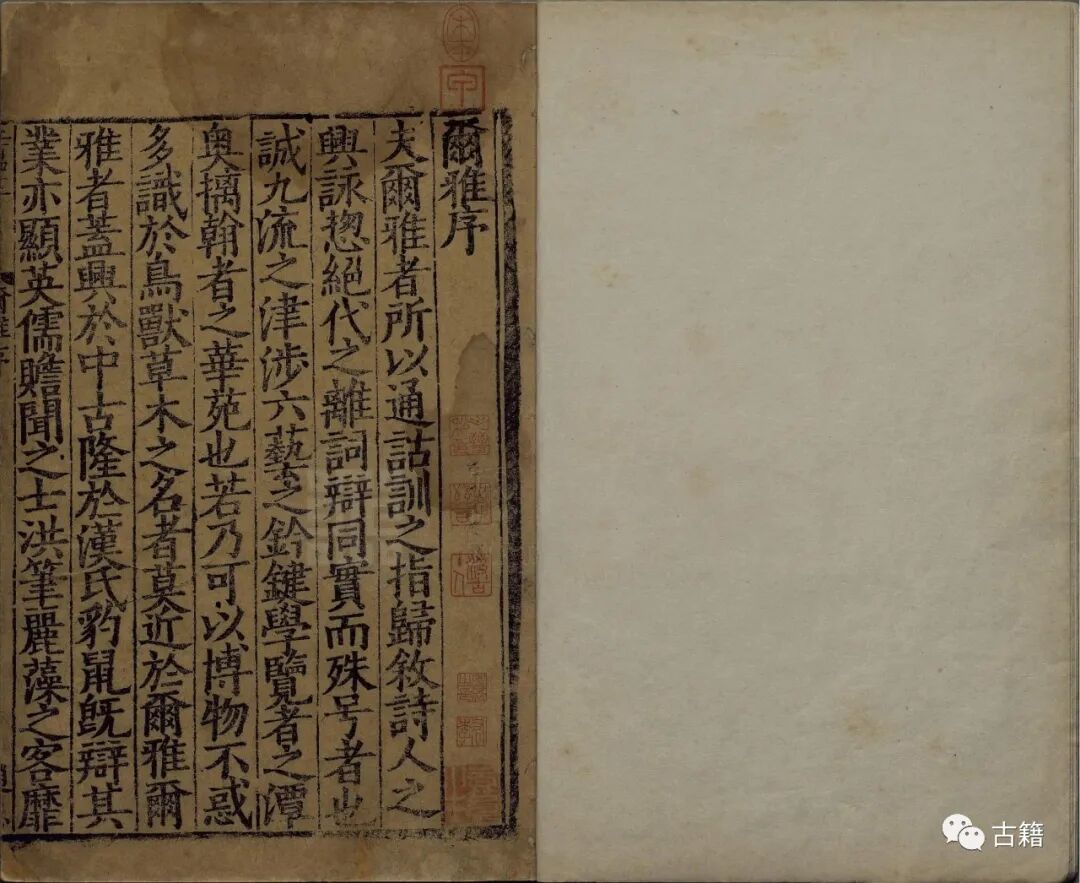 爾雅序
夫爾雅者所以通詁訓之指歸敘詩人之
興詠揔絕代之離詞辯同實而殊号者也
誠九流之津涉六藝之鈐鍵學覽者之潭
奥摛翰者之華苑也若乃可以博物不惑
多識於鳥獸草木之名者莫近於爾雅爾
雅者蓋興於中古隆於漢氏豹鼠旣辯其
業亦顯英儒贍聞之士洪筆麗藻之客靡
古籍